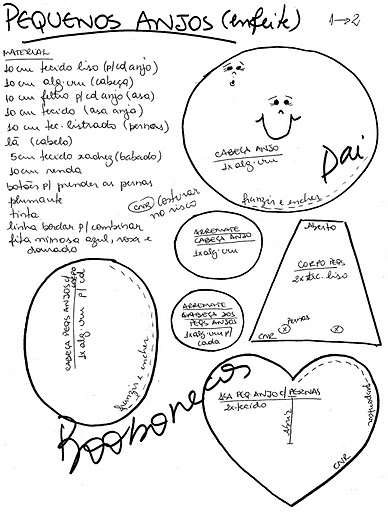 PEQUENOS ANJOS (enfeite) 1→2
MATERIAL
10 cm tecido liso (p/cd anjo)
10 cm alg. cru (cabeça)
10 cm feltro p/cd anjo (asa)
10 cm tecido (asa anjo)
10 cm tec. listrado (pernas)
lã (cabelo)
5 cm tecido xadrez (babado)
10 cm renda
botões p/ prender as pernas
plumante
tinta
linha bordar p/combinar
fita mimosa azul, rosa e
dourado
CNR costurar
no risco
CABEÇA ANJO
1x alg. cru
Pai
franzir e encher
ARREMATE
CABEÇA ANJO
1x alg. cru
ARREMATE
CABEÇA DOS
PEQS ANJOS
1x alg. cru p/
cada
Aberto
CORPO PEQS
2x tec. liso
Pernas
CNR
CABEÇA PEQS ANJOS C/ CORPO
1x alg. cru p/cd
franzir e encher
Boobonecas
ASA PEQ ANJO C/ PERNAS
2x tecido
abrir
CNR
pespontos